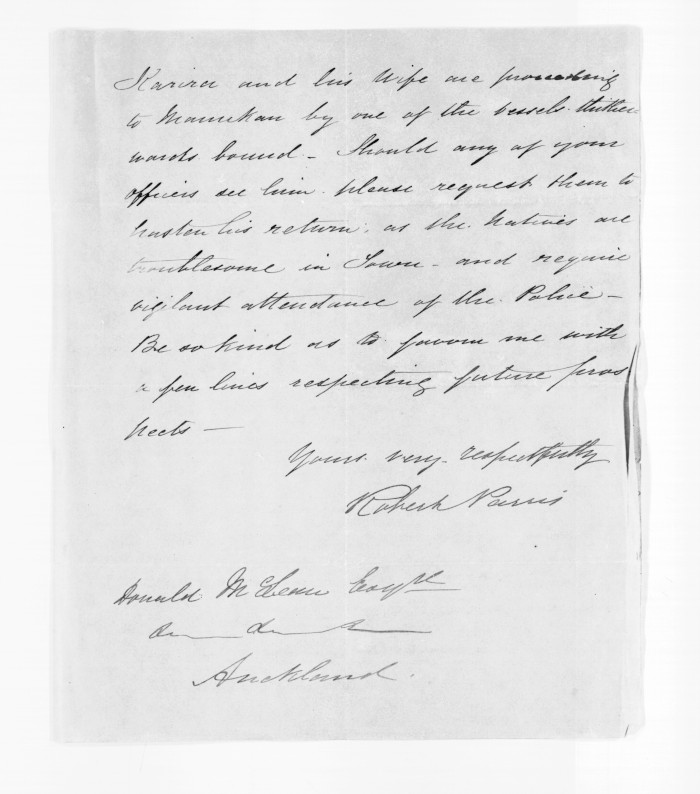 Karira and his Wife are proceeding
to Manukau by one of the vessels thither
wards bound - Should any of your
officers see him please request them to
hasten his return, as the Natives are
troublesome in Town - and require
vigilant attendance of the Police -
Be so kind as to favour me with
a few lines respecting future pros
pects -
Yours very respectfully
Robert Parris
Donald McLean Esqre
Auckland.